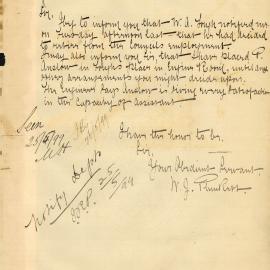 Sir,
I beg to inform you that W. A. notified me
on Tuesday afternoon last that he had decided
to retire from the Councils employment.
I may also inform you Sir that I have placed P.
in place in Engine Room, until
any arrangements you might decide upon.
The Engineer says is giving every satisfaction
in the capacity of assistant
Seen
25/5/99
I have the honor to be.
Sir,
Your Obedient Servant
W. J.
notify Dept
25/5/99